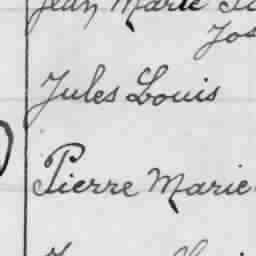 Jean Marie
Jos
Jules Louis
Pierre Marie